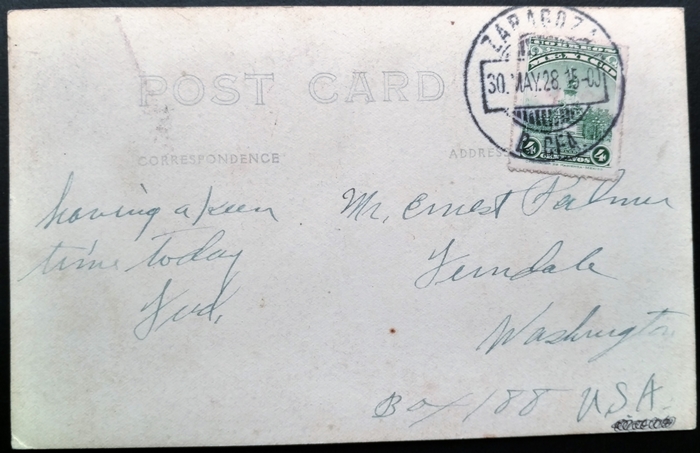 POST CARD
CORRESPONDENCE
ADDRESS
ZARAGOZA
30. MAY. 28. 15-00
B. CFA.
MEXICO
4 CENTAVOS 4
having a keen
time today
Fred,
Mr, Ernest Palmer
Ferndale
Washington
Box 188 USA.